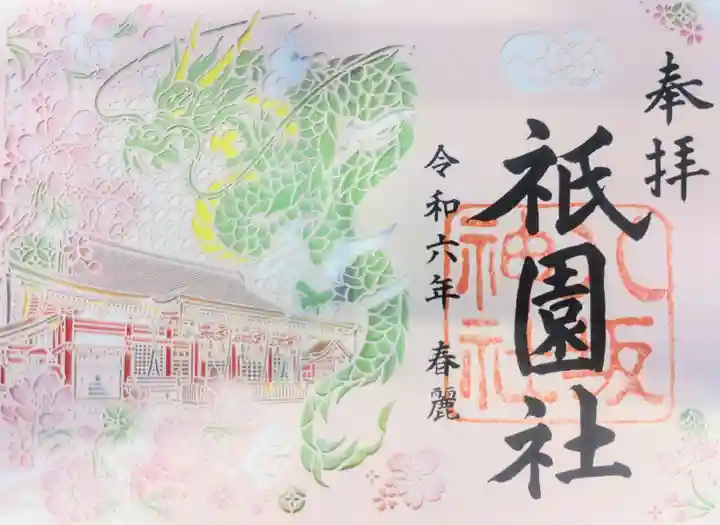 奉拝
祇園社
八坂
神社
令和六年 春麗